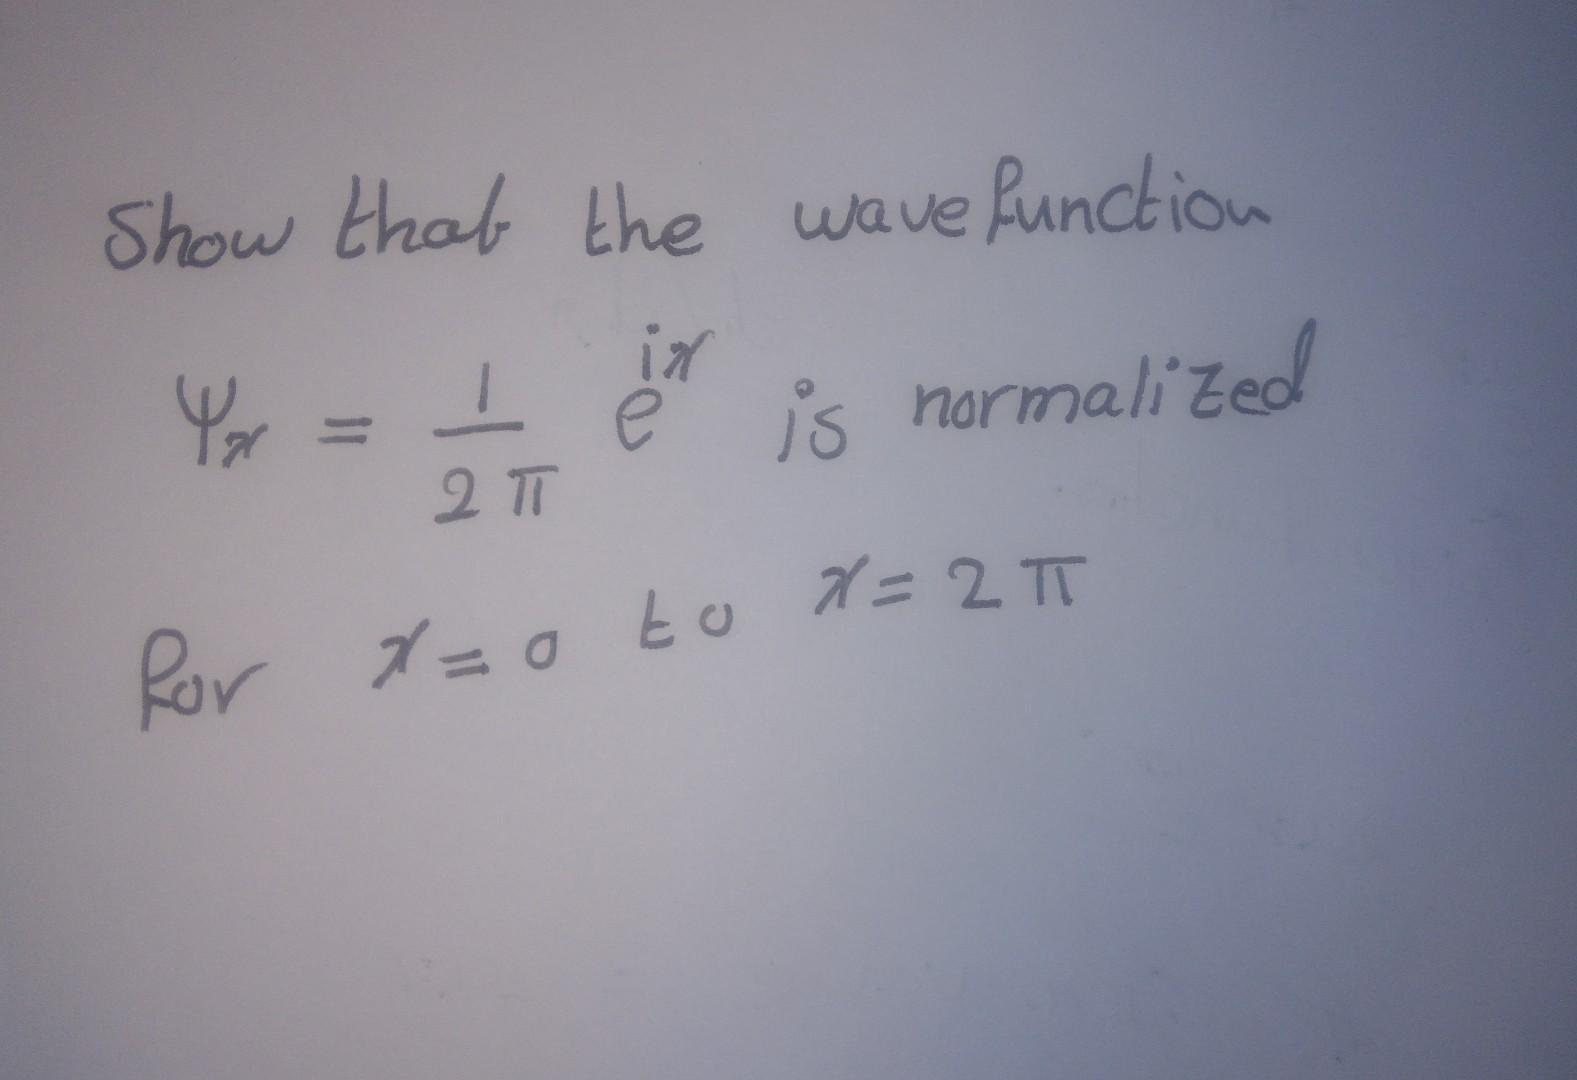 Show that the wavefunction
Ψx = 1/2π e^ix is normalized
for x=0 to x=2π